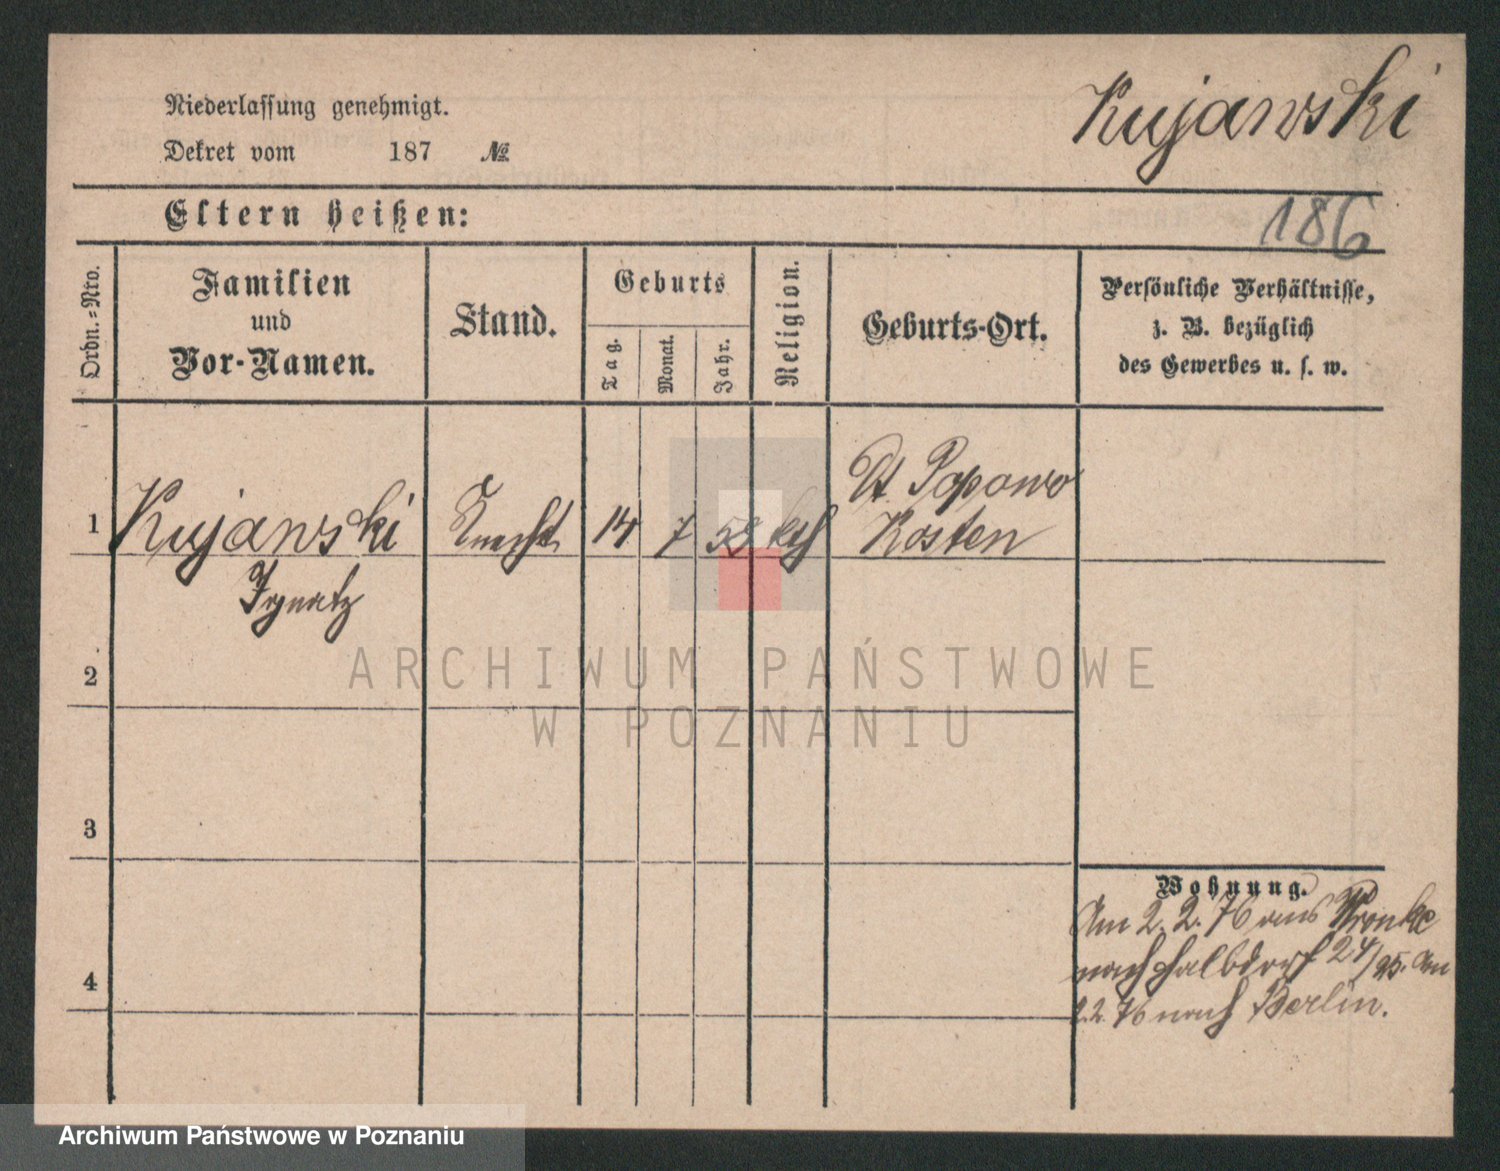 Kujawski
Niederlassung genehmigt.
Dekret vom 187 №
Eltern heißen:
186
Ordn.=Nro.
Familien
und
Vor-Namen.
Stand.
Geburts
Tag.
Monat.
Jahr.
Religion.
Geburts-Ort.
Persönliche Verhältnisse,
z. B. bezüglich
des Gewerbes u. s. w.
Dt Popowo
1 Kujawski Knecht 14 7 53 kth Kosten
Ignatz
2
3
4
Wohnung.
Am 2. 2. 76 aus Wronke
nach Halbdorf 24/25. Am
2.2. 76 nach Berlin.
ARCHIWUM PAŃSTWOWE
W POZNANIU
Archiwum Państwowe w Poznaniu